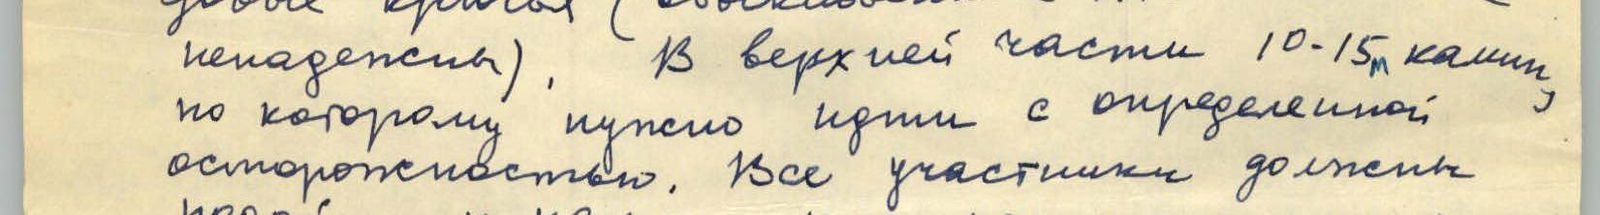 ненадежны). В верхней части 10-15м камин,
по которому нужно идти с определенной
осторожностью. Все участники должны